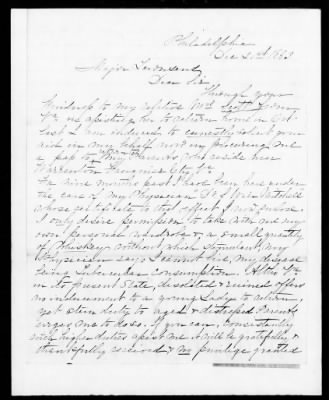 Philadelphia
Dec 20th 1863
Major Townsend
Dear Sir
Through your
kindness to my
in
assisting her to return home in Oct
last I am induced to earnestly solicit your
aid in my behalf in procuring me
a pass to my Parents, who reside near
Warrenton Fauquier Cty, Va
For nine months past I have been here under
the care of my Physician Dr Mitchell
whose certificate to that effect I
I only desire permission to take with me my
own personal wardrobe & a small quantity
of Whiskey without which stimulant, my
Physician says I cannot live, my disease
being Tubercular Consumption. Altho' Va
in its present State, desolated & ruined offers
no inducement to a young Lady to return,
yet stern duty to aged & distressed Parents
urges me to do so. If you can, consistently
with higher duties assist me it will be gratefully &
thankfully received & no privilege granted